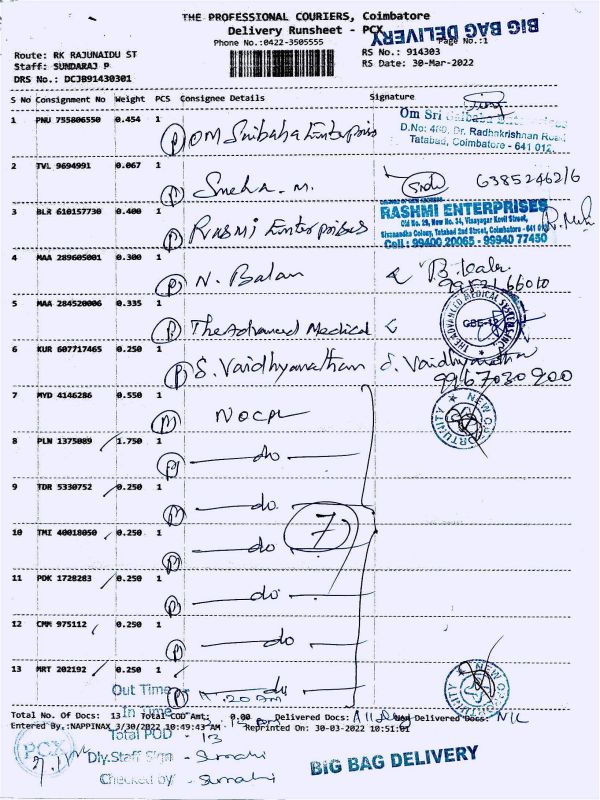 THE PROFESSIONAL COURIERS, Coimbatore
Delivery Runsheet - PCX
BIG BAG DELIVERY
Phone No.:0422-3505555
Page No.:1
Route: RK RAJUNAIDU ST
RS No.: 914303
Staff: SUNDARAJ P
RS Date: 30-Mar-2022
DRS No.: DCJB91430301
S No Consignment No Weight PCS Consignee Details Signature
1 PNU 755806550 0.454 1 (P) OM Sribaba Enterprises
Om Sri Saibaba Enterprises
D.No: 480, Dr. Radhakrishnan Road
Tatabad, Coimbatore - 641 012.
2 TVL 9694991 0.067 1 Sneha. M.
3 BLR 610157730 0.400 1 Rasmi Enterprises
RASHMI ENTERPRISES
Old No. 28, New No. 34, Vinayagar Kovil Street,
Sivanandha Colony, Tatabad 2nd Street, Coimbatore - 641 012
Cell : 99400 20065 - 99940 77450
4 MAA 289605001 0.300 1 (P) N. Balan
5 MAA 284520006 0.335 1 (P) The Advanced Medical
THE ADVANCED MEDICAL SYSTEMS
CBE-12
6 KUR 607717465 0.250 1 (P) S. Vaidhyanathan S. Vaidhyanathan
9967030900
7 MYD 4146286 0.550 1 NOCPL
NEW OPPORTUNITY
8 PLN 1375089 1.750 1 do
9 TDR 5330752 0.250 1 do
10 TMI 40018050 0.250 1 do
7
11 PDK 1728283 0.250 1 do
12 CMM 975112 0.250 1 do
13 MRT 202192 0.250 1 do
NEW OPPORTUNITY
Out Time - 11.20 am
In Time
Total No. Of Docs: 13 Total COD Amt: 0.00 Delivered Docs: All Non Delivered Docs: NIL
Entered By.:NAPPINAX 3/30/2022 10:49:43 AM Reprinted On: 30-03-2022 10:51:01
Total POD - 13
PCX
Dly.Staff Sign -
Checked by -
BIG BAG DELIVERY